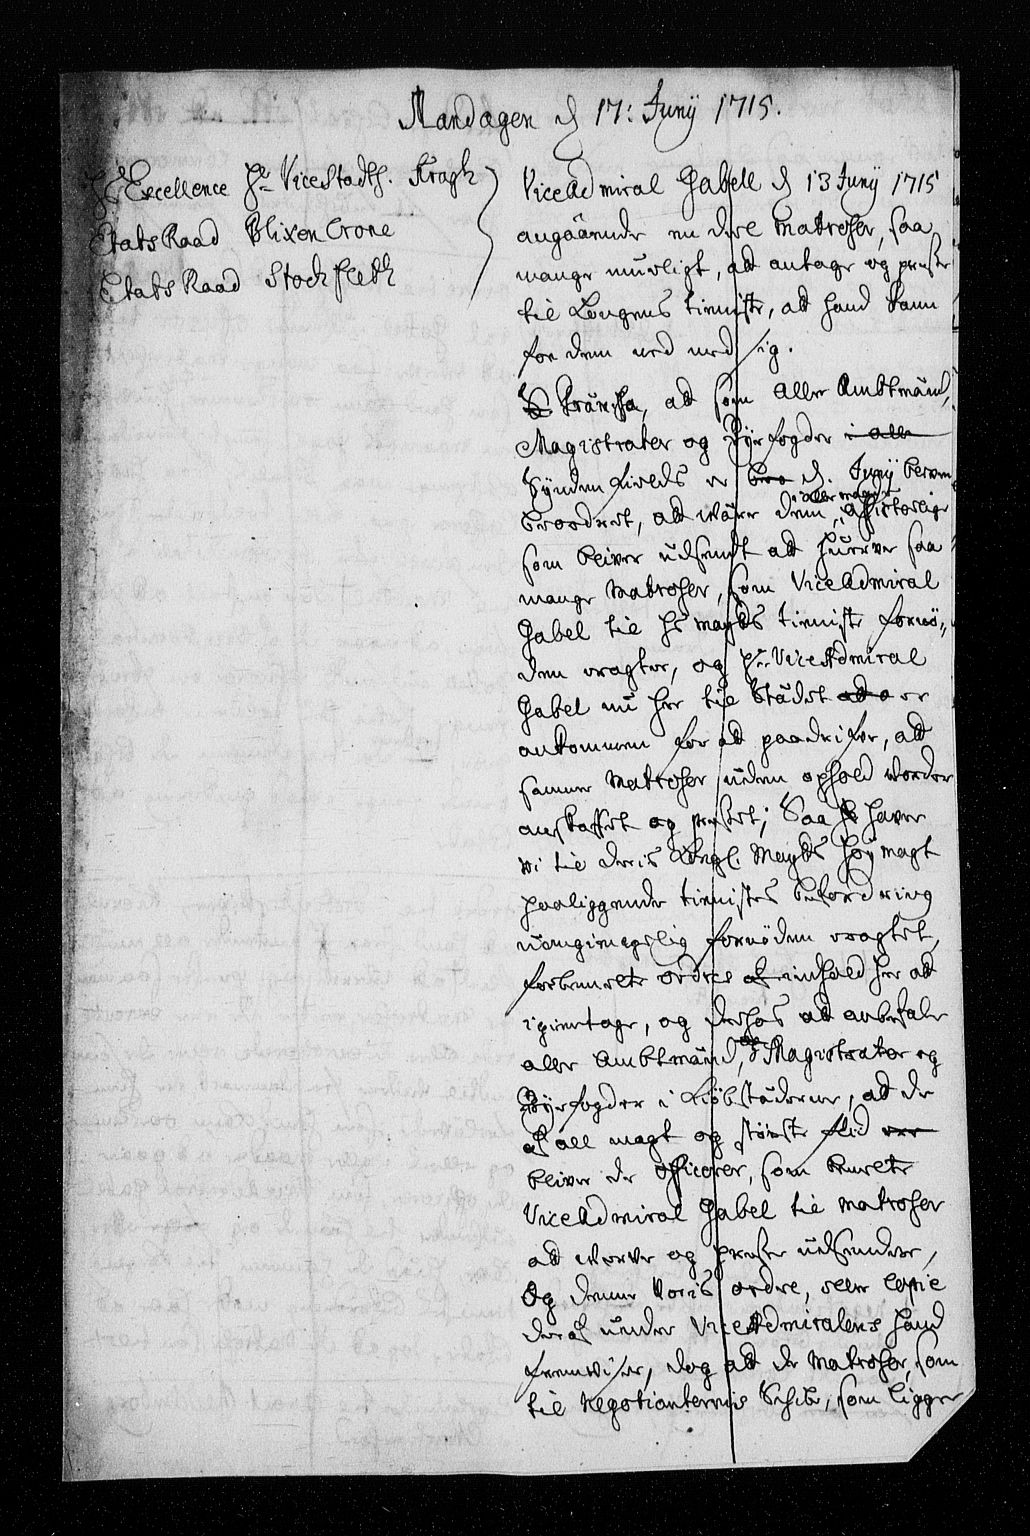 Mandagen d 17: Junij 1715.
Hs Excellence Hr ViceStadth. Kragh
EtatsRaad Blixencrone
EtatsRaad Stockfleth
ViceAdmiral Gabell d 13 Junij 1715
angaaende en deel Matroser, saa
mange mueligt, att antage og presse
til Kongens tienniste, att hand kann
før dem ned med sig.
att som aller Ambtmænd,
Magistrater og Byefogder i alle
Synden fields er d. Junij
beordret, att være dem, i aller maader, assisterlige
som bliver udsendt att hverve saa
mange Matroser, som ViceAdmiral
Gabel til Hs mayts tienniste fornø,,
den eragter, og Hr ViceAdmiral
Gabel nu her til Stædet er
ankommen for att paadrifve, att
samme Matroser uden ophold worder
anskaffet og presset; Saa haver
wi til deris Kongl. Mayts høy magt
paaliggende tiennistes befordring
uomgiengelig fornøden eragtet,
forbemelte ordres indhold her att
igientage, og derhos att anbefale
aller Ambtmænd, Magistrater og
Byefogder i Kiøbstæderne, att de
af all magt og største flid
bliver de officerer, som bemelte
ViceAdmiral Gabel til Matroser
att werve og presse udsender,
og denne Voris ordre, eller Copie
deraf under ViceAdmiralens Haand
fremviser, dog att de Matroser, som
til Negotianternis Schibe, som ligger